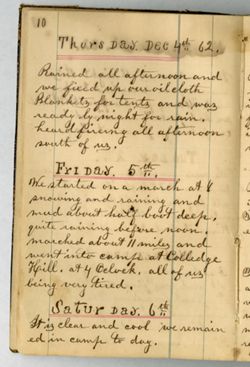 10
Thurs Day. Dec 4th 62.
Rained all afternoon and
we fixed up our oil cloth
Blankets for tents and was
ready by night for rain.
heard firering all afternoon
south of us.
Friday. 5th.
We started on a march at 6
snowing and raining and
mud about half boot deep.
quite raining before noon.
marched about 11 miles and
went into camp at Colledge
Hill. at 4 Oclock. all of us
being very tired.
Satur Day. 6th
It is clear and cool we remain
ed in camp to day.